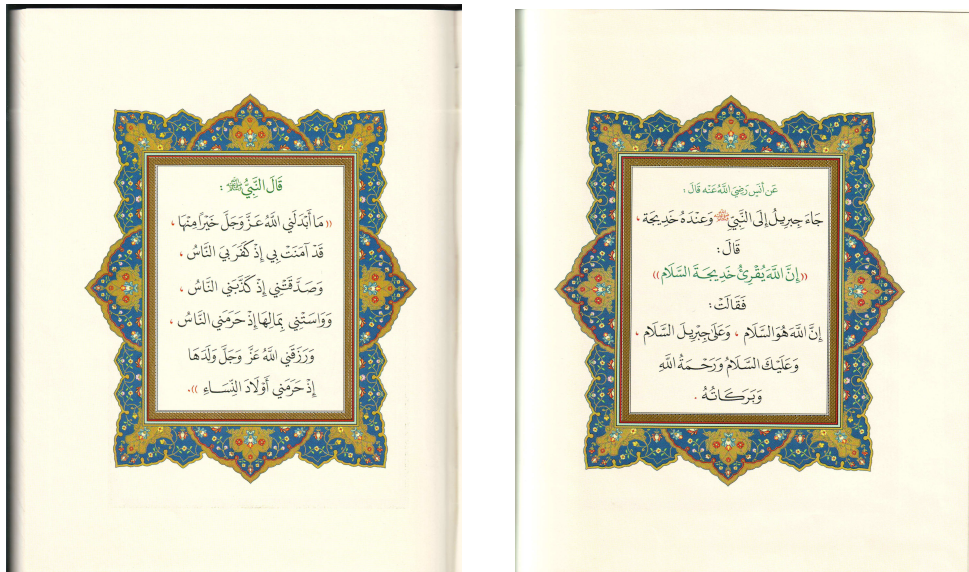 عَن أَنَسٍ رَضِيَ اللَّهُ عَنْه قالَ :
جَاءَ جِبرِيلُ إِلَى النَّبِيِّ ﷺ وَعِنْدَهُ خَدِيجَة ،
قَالَ :
((إِنَّ اللَّهَ يُقْرِئُ خَدِيجَةَ السَّلَام))
فَقَالَتْ :
إِنَّ اللَّهَ هُوَ السَّلَام ، وَعَلَى جِبْرِيلَ السَّلَام ،
وَعَلَيْكَ السَّلَامُ وَرَحْمَةُ اللَّهِ
وَبَرَكَاتُهُ .
قَالَ النَّبِيُّ ﷺ :
((مَا أَبْدَلَنِي اللَّهُ عَزَّ وَجَلَّ خَيْرًا مِنْهَا ،
قَدْ آمَنَتْ بِي إِذْ كَفَرَ بِيَ النَّاسُ ،
وَصَدَّقَتْنِي إِذْ كَذَّبَنِي النَّاسُ ،
وَوَاسَتْنِي بِمَالِهَا إِذْ حَرَمَنِي النَّاسُ ،
وَرَزَقَنِي اللَّهُ عَزَّ وَجَلَّ وَلَدَهَا
إِذْ حَرَمَنِي أَوْلَادَ النِّسَاءِ )).